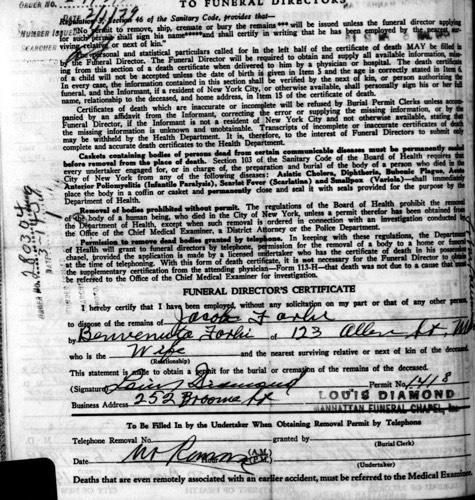 ORDER NO.
TO FUNERAL DIRECTORS
Regulation 1, Section 46 of the Sanitary Code, provides that—
"No permit to remove, ship, cremate or bury the remains *** will be issued unless the funeral director applying
for such permit shall sign his name **** and shall certify in writing that he has been employed by the nearest sur-
viving relative or next of kin."
NUMBER ISSUED
SEARCHER
The personal and statistical particulars called for in the left half of the certificate of death MAY be filled in
by the Funeral Director. The Funeral Director will be required to obtain and supply all available information, miss-
ing from this section of a death certificate when delivered to him by a physician or hospital. The death certificate
of a child will not be accepted unless the date of birth is given in Item 5 and the age is correctly stated in Item 6.
In every case, the information contained in this section shall be verified by the next of kin, or person authorizing the
funeral, and the Informant, if a resident of New York City, or otherwise available, shall personally sign his or her full
name, relationship to the deceased, and home address, in Item 15 of the certificate of death.
Certificates of death which are inaccurate or incomplete will be refused by Burial Permit Clerks unless accom-
panied by an affidavit from the Informant, correcting the error or supplying the missing information, or, by the
Funeral Director, if the Informant is not a resident of New York City and not otherwise available, stating that
the missing information is unknown and unobtainable. Transcripts of incomplete or inaccurate certificates of death
may be withheld by the Health Department. It is, therefore, to the interest of Funeral Directors to submit only
complete and accurate death certificates to the Health Department.
Caskets containing bodies of persons dead from certain communicable diseases must be permanently sealed
before removal from the place of death. Section 103 of the Sanitary Code of the Board of Health requires that
every undertaker engaged for, or in charge of, the preparation and burial of the body of a person who died in the
City of New York from any of the following diseases: Asiatic Cholera, Diphtheria, Bubonic Plague, Acute
Anterior Poliomyelitis (Infantile Paralysis), Scarlet Fever (Scarlatina) or Smallpox (Variola),—shall immediately
place the body in a coffin or casket and permanently close and seal it with seals provided for the purpose by the
Department of Health.
Removal of bodies prohibited without permit. The regulations of the Board of Health prohibit the removal
of the body of a human being, who died in the City of New York, unless a permit therefor has been obtained from
the Department of Health, except when such removal is ordered in connection with an investigation conducted by
the Office of the Chief Medical Examiner, a District Attorney or the Police Department.
Permission to remove dead bodies granted by telephone. In keeping with these regulations, the Department
of Health will grant to funeral directors by telephone, permission for the removal of a body to a home or funeral
chapel, provided the application is made by a licensed undertaker who has the certificate of death in his possession
at the time of telephoning. With this form of death certificate, it is not necessary for the Funeral Director to obtain
the supplementary certification from the attending physician—Form 113-H—that death was not due to a cause that must
be referred to the Office of the Chief Medical Examiner for investigation.
FUNERAL DIRECTOR'S CERTIFICATE
I hereby certify that I have been employed, without any solicitation on my part or that of any other person
to dispose of the remains of Jacob
by Benvenuta of 123 Allen St
who is the Wife and the nearest surviving relative or next of kin of the deceased.
(Relationship)
This statement is made to obtain a permit for the burial or cremation of the remains of the deceased.
(Signature) Louis Diamond Permit No. 1418
Business Address 252 Broome St LOUIS DIAMOND
MANHATTAN FUNERAL CHAPEL, Inc.
To Be Filled In by the Undertaker When Obtaining Removal Permit by Telephone
Telephone Removal No. granted by
(Burial Clerk)
Date No Removal (A.M.
(P.M.)
(Undertaker)
Deaths that are even remotely associated with an earlier accident, must be referred to the Medical Examiner